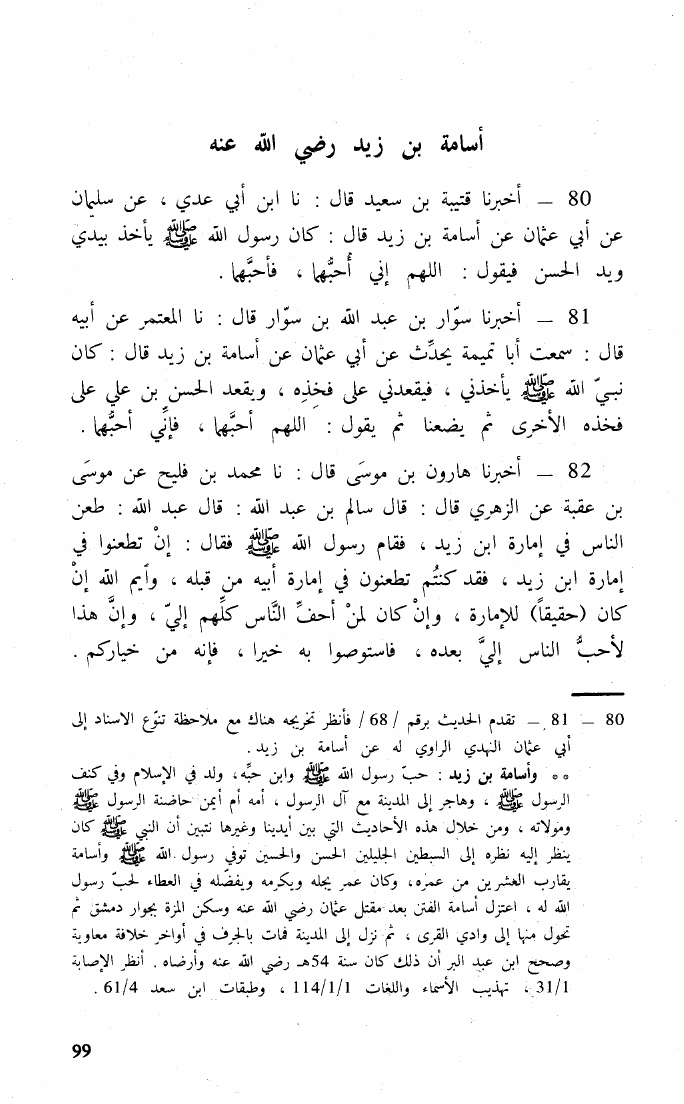 أسامة بن زيد رضي الله عنه
80 — أخبرنا قتيبة بن سعيد قال : نا ابن أبي عدي ، عن سليمان
عن أبي عثمان عن أسامة بن زيد قال : كان رسول الله ﷺ يأخذ بيدي
ويد الحسن فيقول : اللهم إني أُحبُّهما ، فأحبَّهما .
81 — أخبرنا سوّار بن عبد الله بن سوّار قال : نا المعتمر عن أبيه
قال : سمعت أبا تميمة يحدِّث عن أبي عثمان عن أسامة بن زيد قال : كان
نبيّ الله ﷺ يأخذني ، فيقعدني على فخذِه ، ويقعد الحسن بن علي على
فخذه الأخرى ثم يضعنا ثم يقول : اللهم أحبَّهما ، فإنِّي أحبُّهما .
82 — أخبرنا هارون بن موسَى قال : نا محمد بن فليح عن موسَى
بن عقبة عن الزهري قال : قال سالم بن عبد الله : قال عبد الله : طعن
الناس في إمارة ابن زيد ، فقام رسول الله ﷺ فقال : إنْ تطعنوا في
إمارة ابن زيد ، فقد كنتُم تطعنون في إمارة أبيه من قبله ، وأيم الله إنْ
كان (حقيقاً) للإمارة ، وإنْ كان لمنْ أحفِّ النَّاس كلِّهم إليّ ، وإنَّ هذا
لأحبُّ الناس إليَّ بعده ، فاستوصوا به خيرا ، فإنه من خياركم .
80 — 81 — تقدم الحديث برقم / 68 / فأنظر تخريجه هناك مع ملاحظة تنوّع الاسناد إلى
أبي عثمان النهدي الراوي له عن أسامة بن زيد .
٥٥ وأسامة بن زيد : حبّ رسول الله ﷺ وابن حبِّه، ولد في الإسلام وفي كنف
الرسول ﷺ ، وهاجر إلى المدينة مع آل الرسول ، أمه أم أيمن حاضنة الرسول ﷺ
ومولاته ، ومن خلال هذه الأحاديث التي بين أيدينا وغيرها نتبين أن النبي ﷺ كان
ينظر إليه نظره إلى السبطين الجليلين الحسن والحسين توفي رسول الله ﷺ وأسامة
يقارب العشرين من عمره، وكان عمر يجله ويكرمه ويفضّله في العطاء لحبّ رسول
الله له ، اعتزل أسامة الفتن بعد مقتل عثمان رضي الله عنه وسكن المزة بجوار دمشق ثم
تحول منها إلى وادي القرى ، ثم نزل إلى المدينة فمات بالجرف في أواخر خلافة معاوية
وصحح ابن عبد البر أن ذلك كان سنة 54هـ رضي الله عنه وأرضاه . أنظر الإصابة
31/1 ، تهذيب الأسماء واللغات 114/1/1 ، وطبقات ابن سعد 61/4 .
99